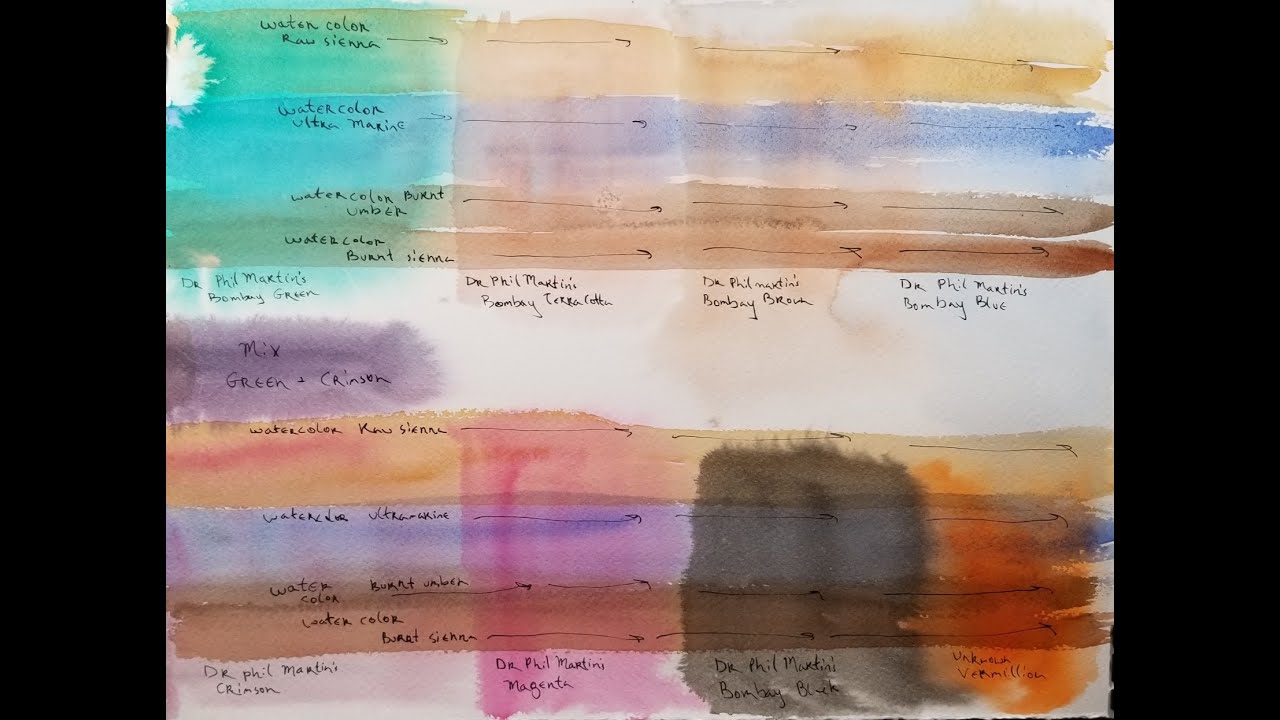 Water color
Raw sienna
Watercolor
Ultra Marine
Watercolor Burnt
umber
Watercolor
Burnt sienna
Dr Phil Martin's
Bombay Green
Dr Phil Martin's
Bombay Terra Cotta
Dr Phil martin's
Bombay Brown
Dr Phil Martin's
Bombay Blue
Mix
Green + Crimson
Watercolor Raw sienna
Watercolor ultramarine
Water Burnt umber
color
Water color
Burnt sienna
Dr phil Martin's
Crimson
Dr Phil Martin's
Magenta
Dr Phil Martin's
Bombay Black
Unknown
Vermillion